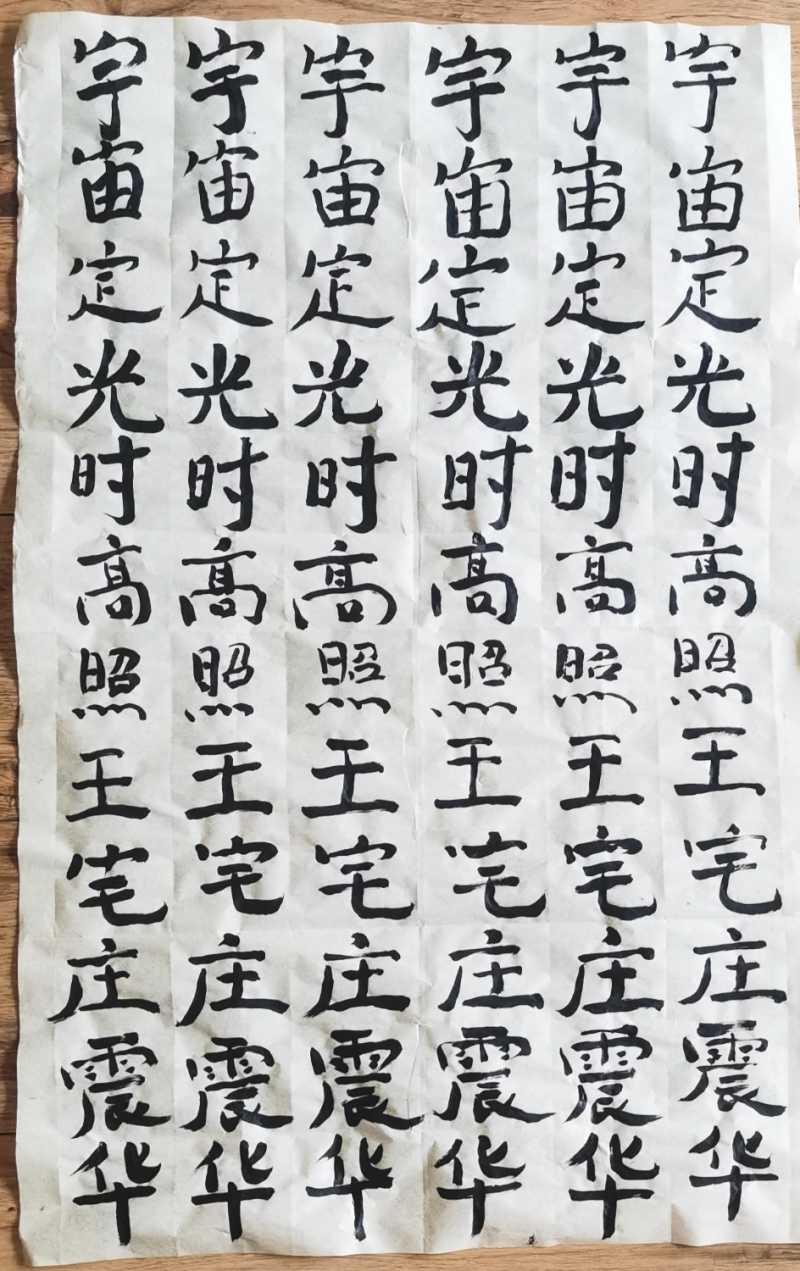 宇宙定光时高照王宅庄震华
宇宙定光时高照王宅庄震华
宇宙定光时高照王宅庄震华
宇宙定光时高照王宅庄震华
宇宙定光时高照王宅庄震华
宇宙定光时高照王宅庄震华